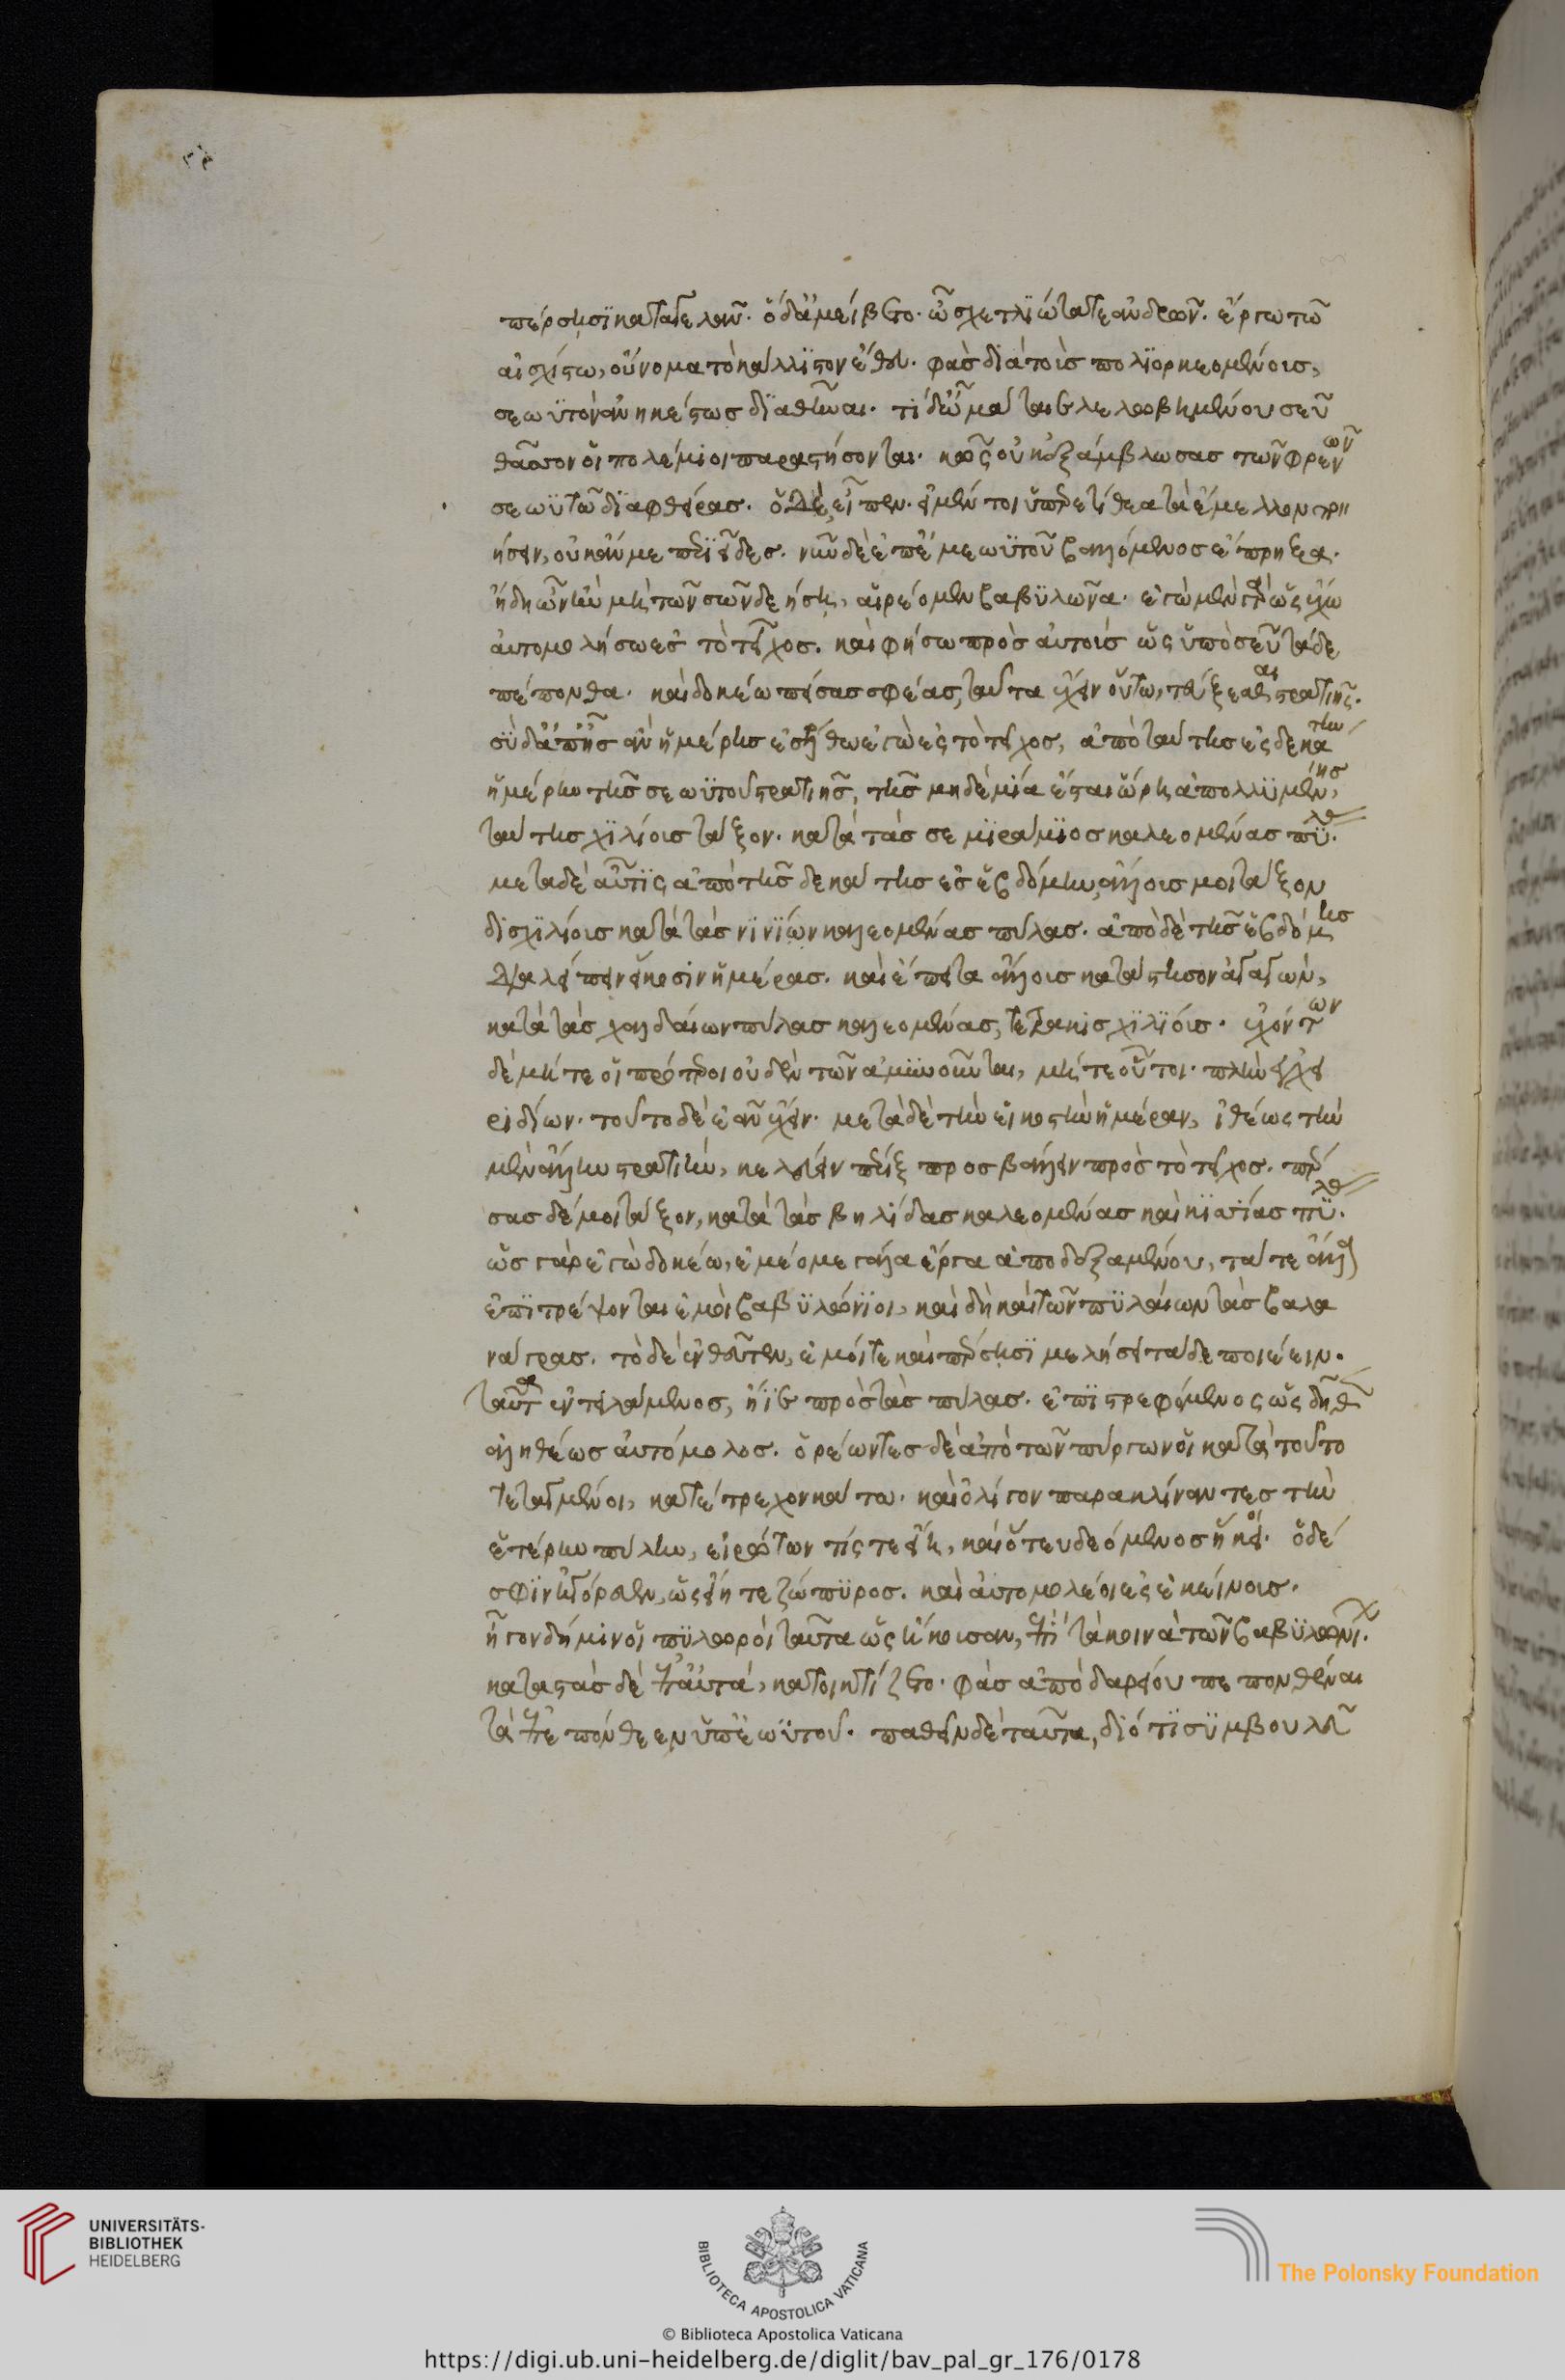 πέρσηισϊ καταγελᾶν. ὁ δ᾽ ἀμείβετο. ὦ σχετλϊώτατε ἀνδρῶν. ἔργω τῶ
αἰσχίστω, οὔνομα τὸ κάλλϊστον ἔθευ. φὰς διὰ τοὺς πολϊορκεομένους,
σεωϋτὸν ἀνηκέστως δϊαθεῖναι. τί δ᾽ ὦ μάταιε λελωβημένου σεῦ
θᾶσσον οἱ πολέμιοι παραστήσονται. κῶς οὐκ ἐξάμβλωσας τῶν φρενῶν
σεωϋτῶ δϊαφθείρας. ὁ δὲ, εἶπεν. εἰ μέν τοι ὑπερετίθεα τὰ ἔμελλον ποι
ήσειν, οὐκ ἄν με περϊεῖδες. νῦν δὲ ἐπ᾽ ἐμεωϋτοῦ βαλλόμενος ἔπρηξα.
ἤδη ὦν ἢν μὴ τῶν σῶν δεήση, αἱρέομεν βαβϋλῶνα. ἐγὼ μὲν γὰρ ὡς ἔχω
αὐτομολήσω ἐς τὸ τεῖχος. καὶ φήσω πρὸς αὐτοὺς ὡς ὑπὸ σεῦ τάδε
πέπονθα. καὶ δοκέω πείσας σφέας ταῦτα ἔχειν οὕτω, τεύξεσθαι στρατιῆς.
σὺ δὲ ἀπ᾽ ἧς ἂν ἡμέρης ἐσέλθω ἐγὼ ἐς τὸ τεῖχος, ἀπὸ ταύτης ἐς δεκάτην
ἡμέρην τῆς σεωϋτοῦ στρατιῆς, τῆς μηδεμία ἔσται ὥρη ἀπολλϋμένης,
ταύτης χϊλίους τάξον. κατὰ τὰς σεμϊράμϊος καλεομένας πύλας.
μετὰ δὲ αὖτϊς ἀπὸ τῆς δεκάτης ἐς ἑβδόμην, ἄλλους μοι τάξον
δϊσχϊλίους κατὰ τὰς νϊνϊων καλεομένας πύλας. ἀπὸ δὲ τῆς ἑβδόμης
διαλείπειν εἴκοσιν ἡμέρας. καὶ ἔπειτα ἄλλους κατάστησον ἀγαγὼν,
κατὰ τὰς χαλδαίων πύλας καλεομένας, τετρακισχϊλϊους. ἐχόντων
δὲ μήτε οἱ πρότεροι οὐδὲν τῶν ἀμϋνούντων, μήτε οὗτοι. πλὴν ἐγχει
ριδίων. τοῦτο δὲ ἐᾶν ἔχειν. μετὰ δὲ τὴν εἰκοστὴν ἡμέραν, ἰθέως τὴν
μὲν ἄλλην στρατιὴν, κελεύειν πέριξ προσβάλλειν πρὸς τὸ τεῖχος. πέρ
σας δέ μοι τάξον, κατὰ τὰς βηλίδας καλεομένας καὶ κϊσσίας πύλας.
ὡς γὰρ ἐγὼ δοκέω, ἐμέο μεγάλα ἔργα ἀποδεξαμένου, τά τε ἄλλα
ἐπϊτρέψονται ἐμοὶ βαβϋλώνϊοι, καὶ δὴ καὶ τῶν πϋλάων τὰς βαλα
νάγρας. τὸ δὲ ἐνθεῦτεν, ἐμοί τε καὶ πέρσηισϊ μελήσει τὰ δεῖ ποιέειν.
ταῦτα ἐντειλάμενος, ἤϊε πρὸς τὰς πύλας. ἐπϊστρεφόμενος ὡς δῆθεν
ἀληθέως αὐτόμολος. ὁρέωντες δὲ ἀπὸ τῶν πύργων οἱ κατὰ τοῦτο
τεταγμένοι, κατέτρεχον κάτω. καὶ ὀλίγον παρακλίναντες τὴν
ἑτέρην πύλην, εἰρώτων τίς τε εἴη, καὶ ὅτευ δεόμενος ἥκοι. ὁ δέ
σφϊν ἠγόρευεν, ὡς εἴη τε ζώπϋρος. καὶ αὐτομολέοι ἐς ἐκείνους.
ἦγον δή μιν οἱ πϋλωροὶ ταῦτα ὡς ἤκουσαν, ἐπὶ τὰ κοινὰ τῶν βαβϋλωνίων.
καταστὰς δὲ ἐπ᾽ αὐτὰ, κατοικτίζετο. φὰς ἀπὸ δαρείου πεπονθέναι
τὰ ἐπεπόνθεεν ὑπ᾽ ἑωϋτοῦ. παθεῖν δὲ ταῦτα, διότϊ σϋμβουλεῦ
UNIVERSITÄTS-
BIBLIOTHEK
HEIDELBERG
BIBLIOTECA APOSTOLICA VATICANA
The Polonsky Foundation
© Biblioteca Apostolica Vaticana
https://digi.ub.uni-heidelberg.de/diglit/bav_pal_gr_176/0178